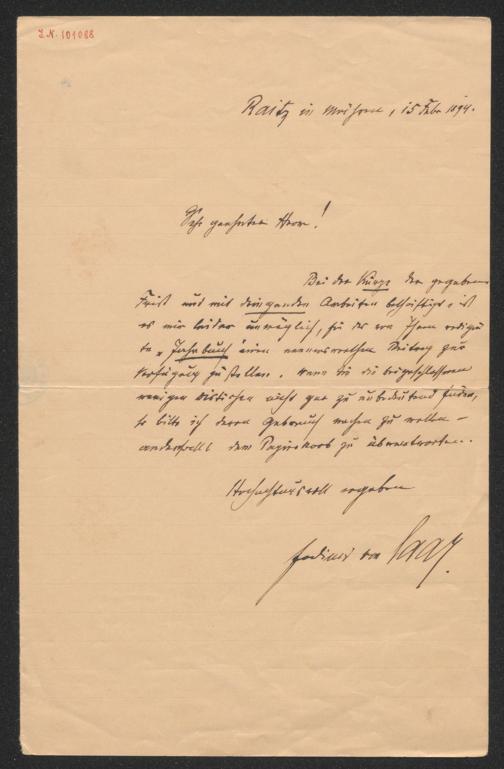 I.N. 101088
Raitz in Mähren, 15 Febr 1894.
Sehr geehrter Herr!
Bei der Kürze der gegebenen
Frist und mit dringenden Arbeiten beschäftigt, ist
es mir leider unmöglich, für das von Ihnen redigir
te „Jahrbuch" einen nennenswerthen Beitrag zur
Verfügung zu stellen. Wenn Sie die beigeschlossenen
wenigen Distichen nicht gar zu unbedeutend finden,
so bitte ich davon Gebrauch machen zu wollen –
andernfalls dem Papierkorb zu überantworten.
Hochachtungsvoll ergeben
Ferdinand von Saar.